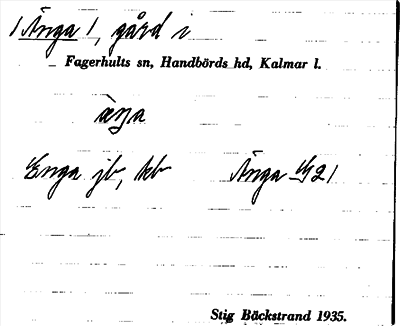 /Änga/, gård i
Fagerhults sn, Handbörds hd, Kalmar l.
Enga jb, kb Änga G21
Stig Bäckstrand 1935.